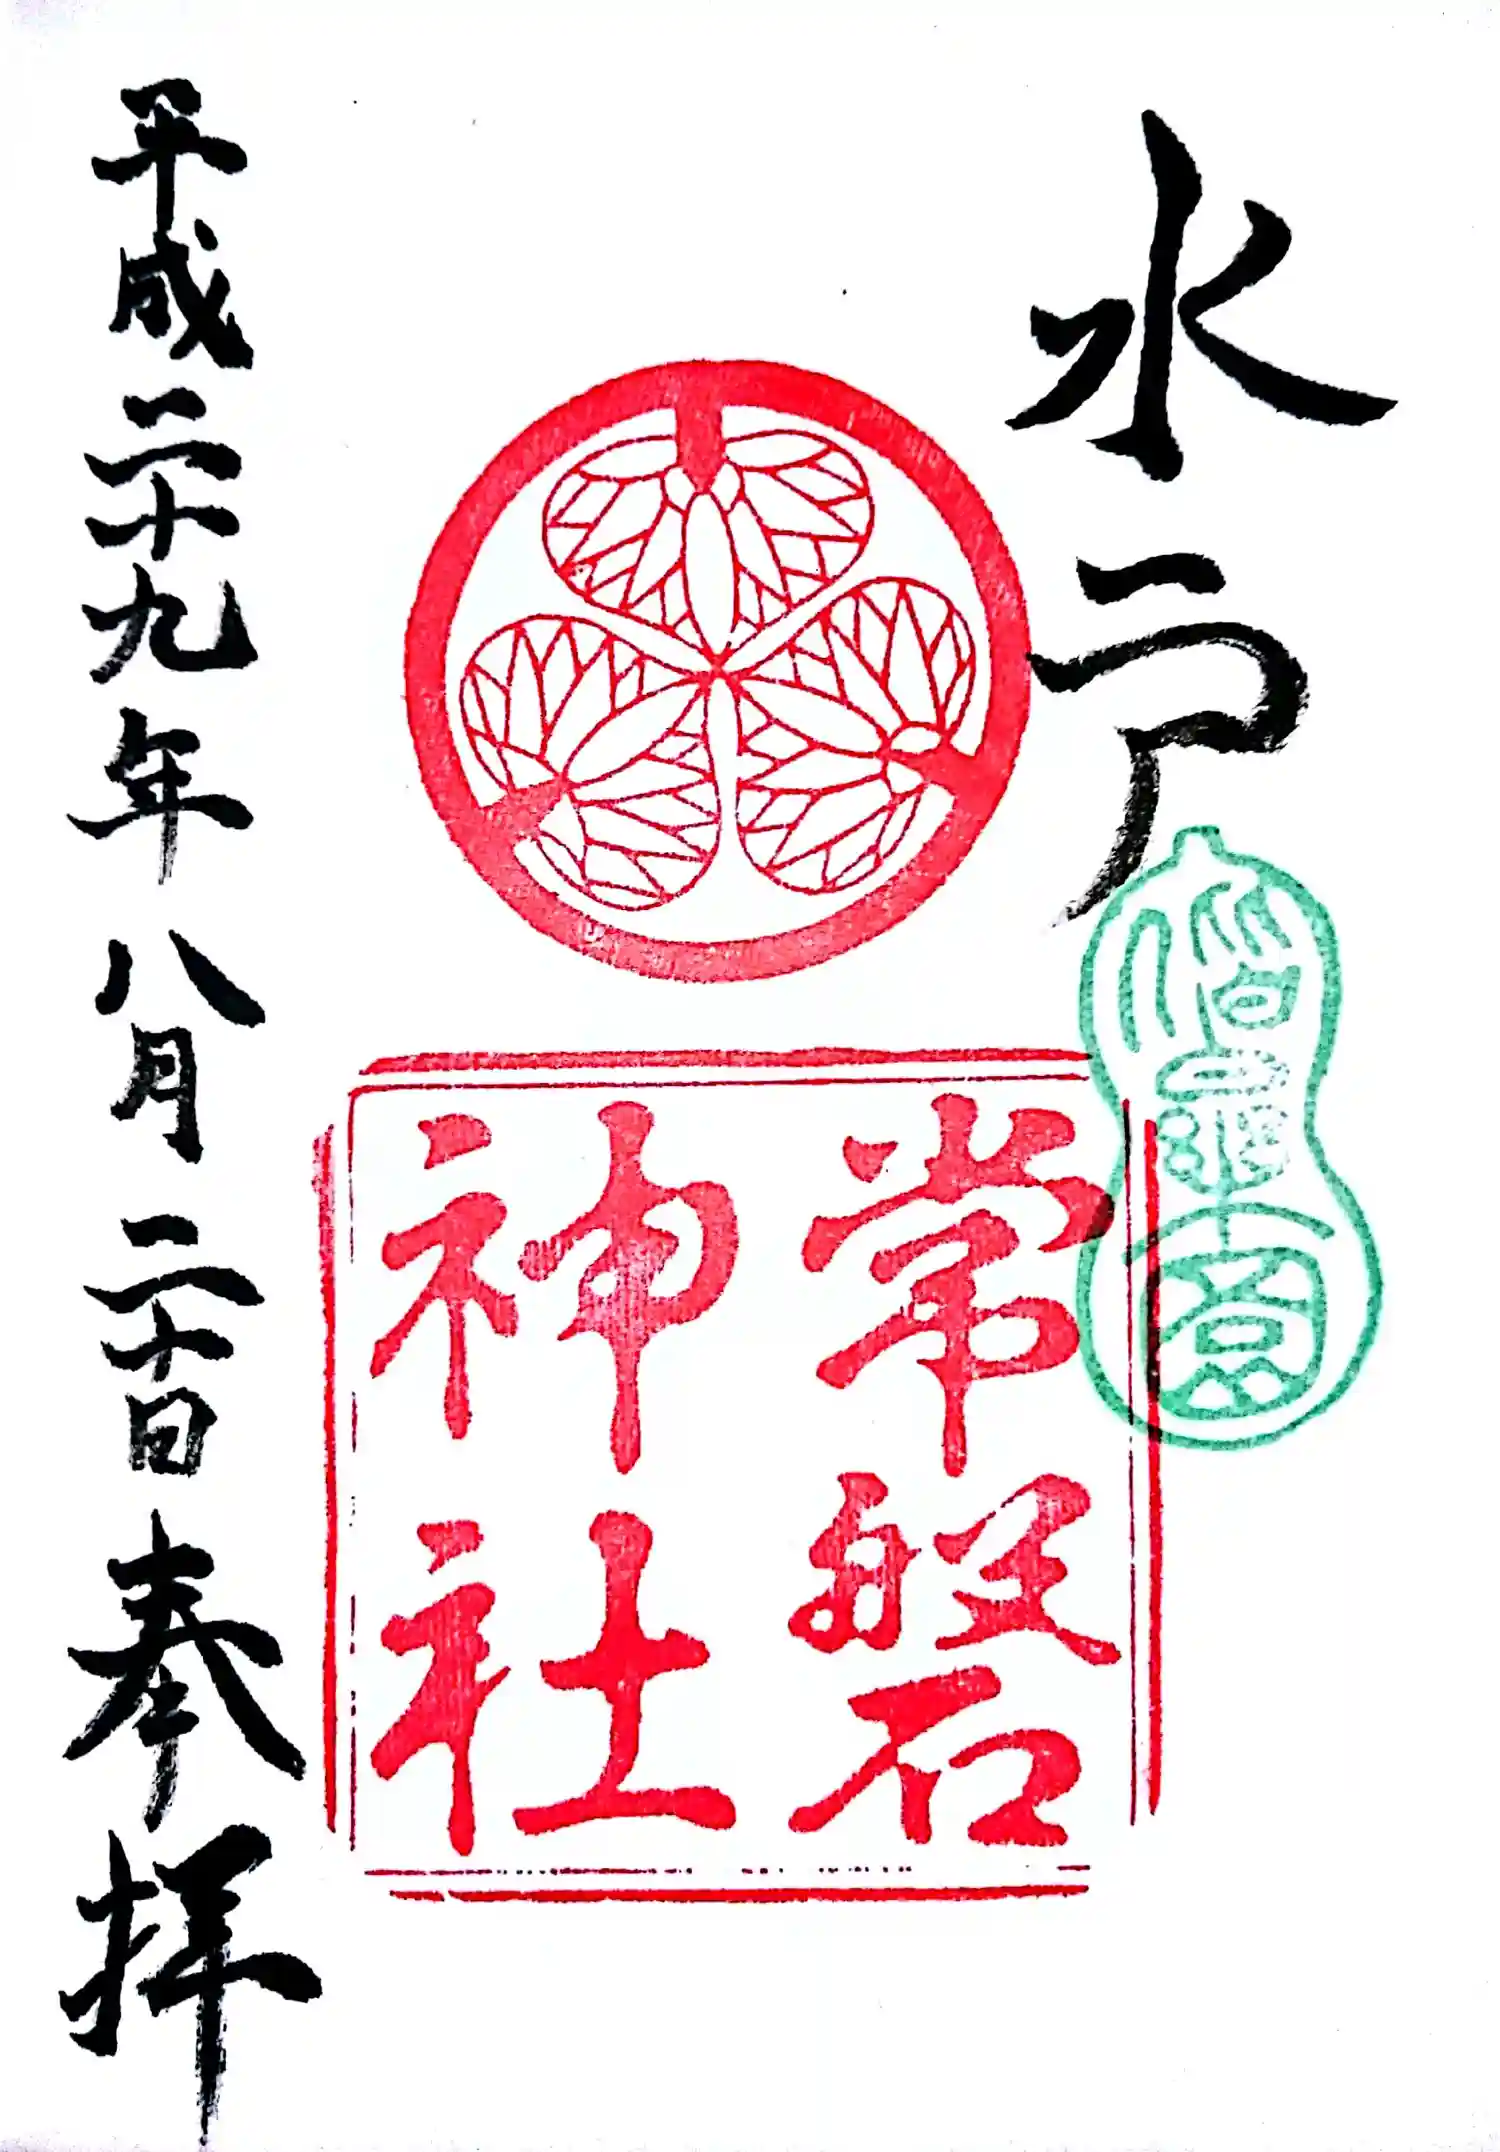 水戸
常磐
神社
平成二十九年八月二十日奉拝